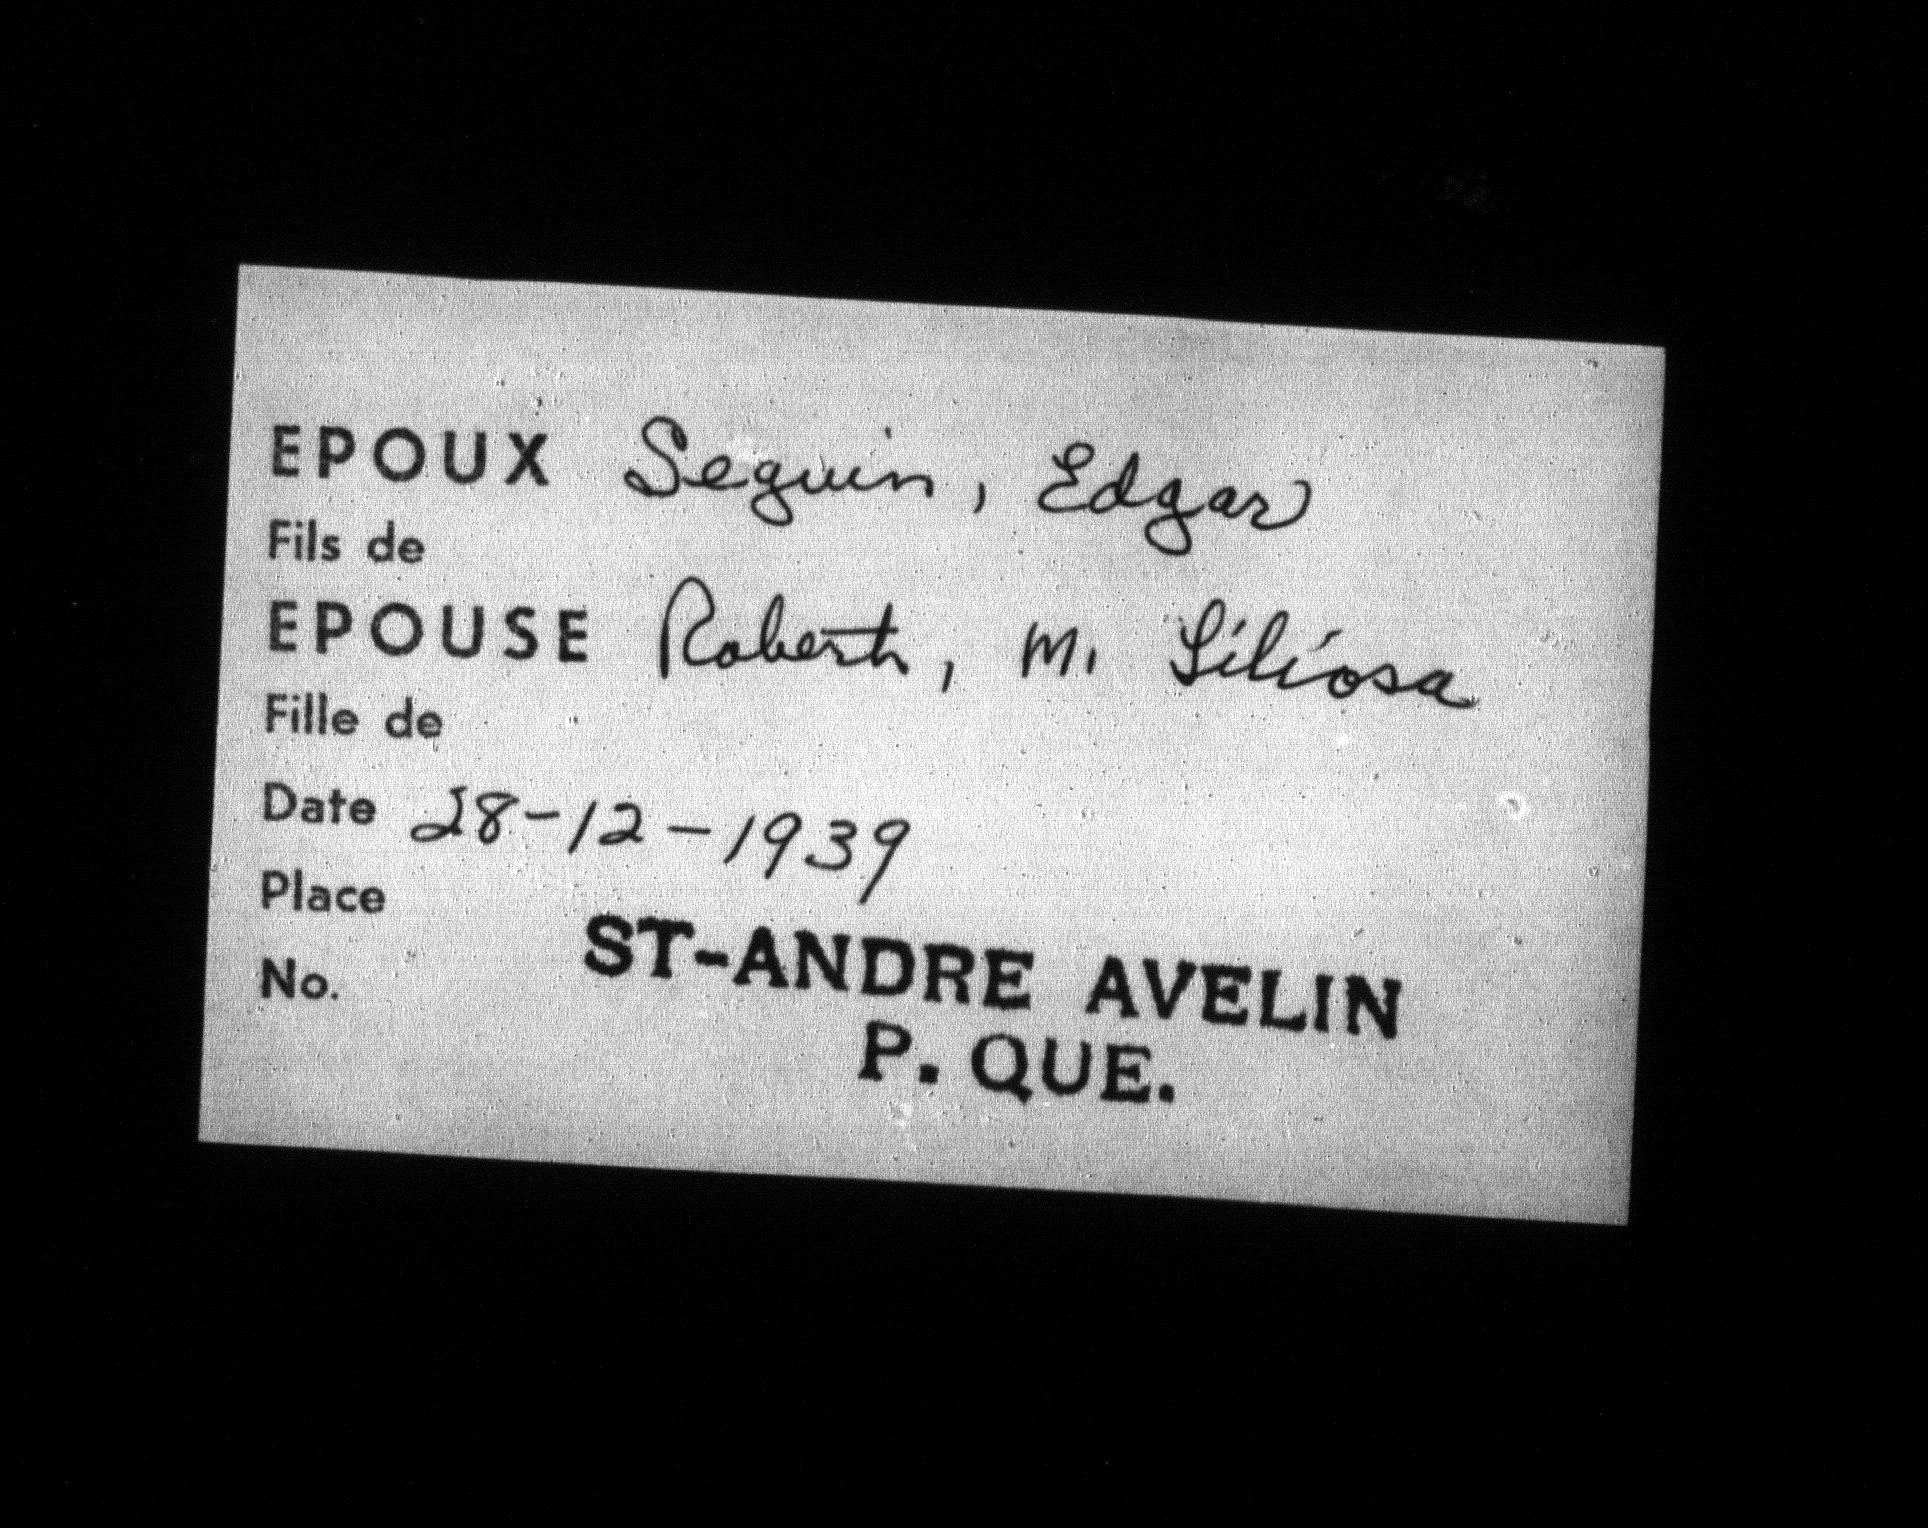 EPOUX Seguin, Edgar
Fils de
EPOUSE Robert, M. Liliosa
Fille de
Date 28-12-1939
Place
No.
ST-ANDRE AVELIN
P. QUE.